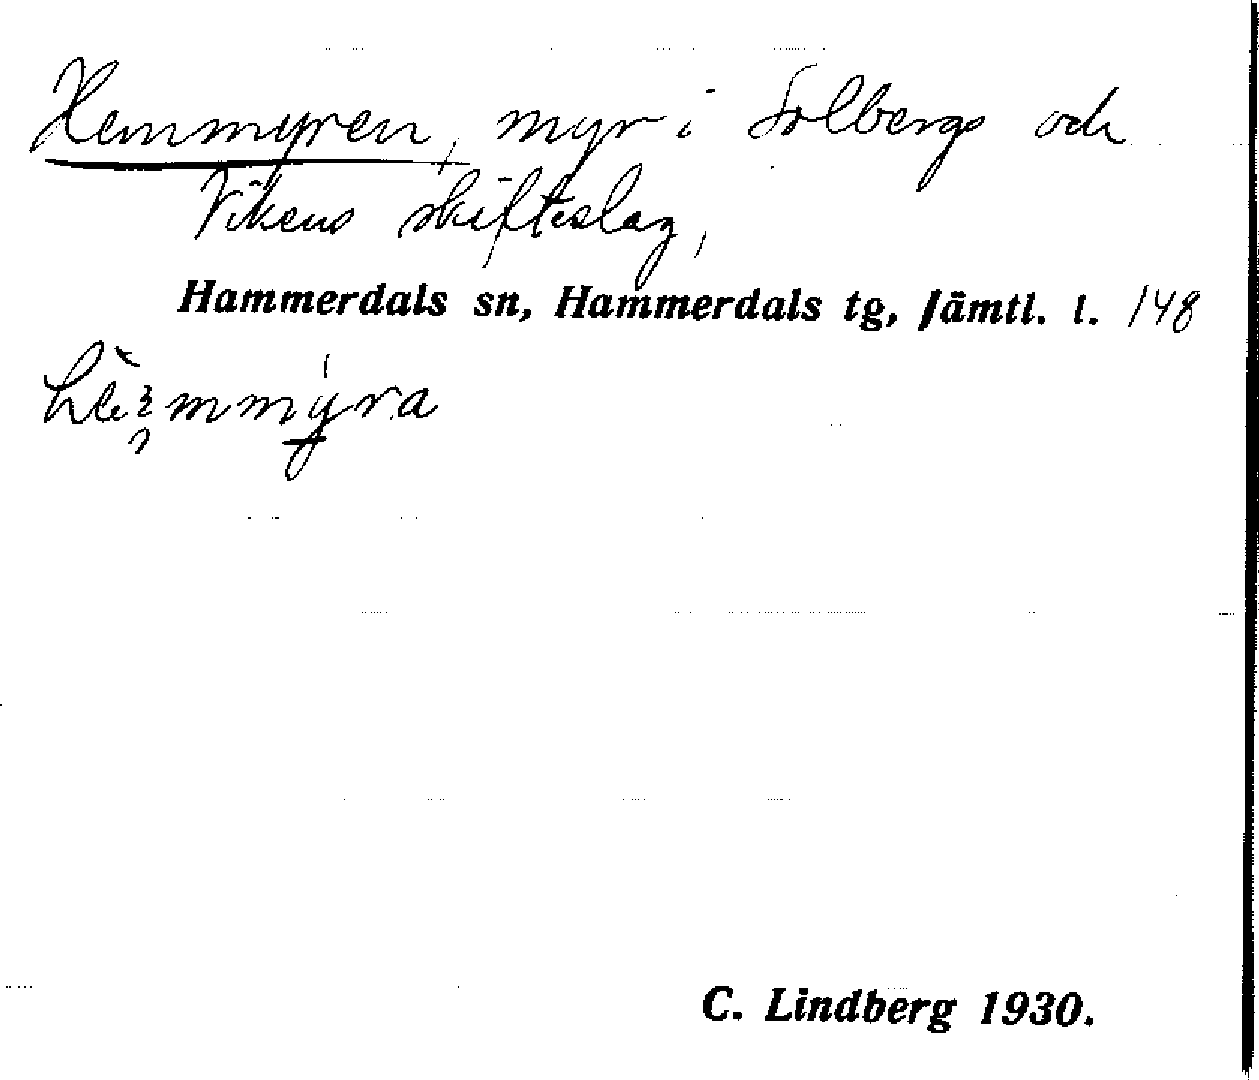 Hemmyren, myr i Solbergs och
Vikens skifteslag,
Hammerdals sn, Hammerdals tg, Jämtl. l. 148
C. Lindberg 1930.